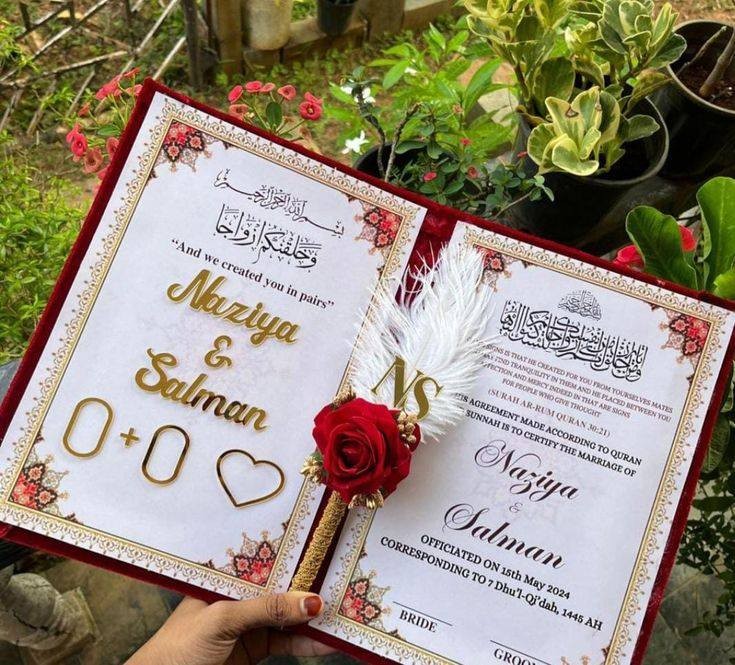 بسم الله الرحمن الرحيم
وخلقنكم ازواجا
“And we created you in pairs”
Naziya
&
Salman
0 + 0
NS
IS THAT HE CREATED FOR YOU FROM YOURSELVES MATES
MAY FIND TRANQUILITY IN THEM AND HE PLACED BETWEEN YOU
AFFECTION AND MERCY INDEED IN THAT ARE SIGNS
FOR PEOPLE WHO GIVE THOUGHT
(SURAH AR-RUM QURAN 30:21)
THIS AGREEMENT MADE ACCORDING TO QURAN
SUNNAH IS TO CERTIFY THE MARRIAGE OF
Naziya
&
Salman
OFFICIATED ON 15th May 2024
CORRESPONDING TO 7 Dhu'l-Qi'dah, 1445 AH
BRIDE
GROOM